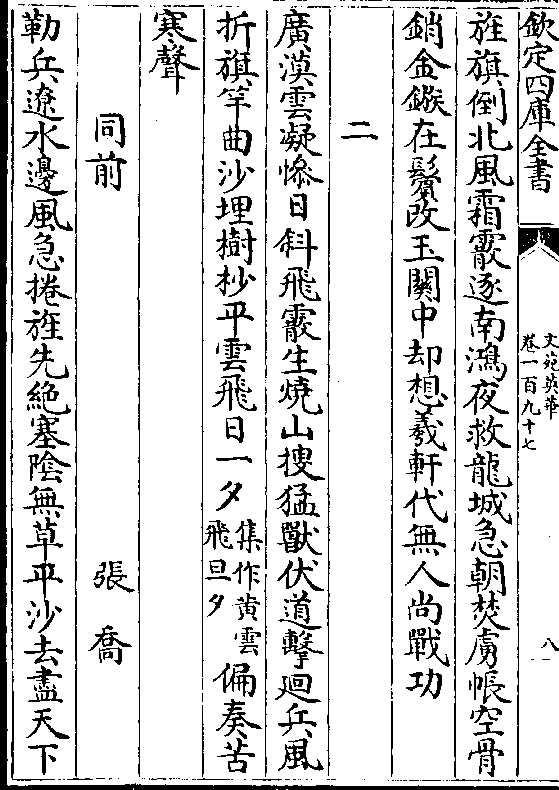 欽定四庫全書
文苑英華
卷一百九十七
八
旌旗倒北風霜霰逐南鴻夜救龍城急朝焚虜帳空骨
銷金鏃在鬢改玉關中却想羲軒代無人尚戰功
二
廣漠雲凝慘日斜飛霰生燒山搜猛獸伏道擊迴兵風
折旗竿曲沙埋樹杪平雲飛日一夕集作黄雲飛旦夕偏奏苦
寒聲
同前 張喬
勒兵遼水邊風急捲旌先絶塞陰無草平沙去盡天下